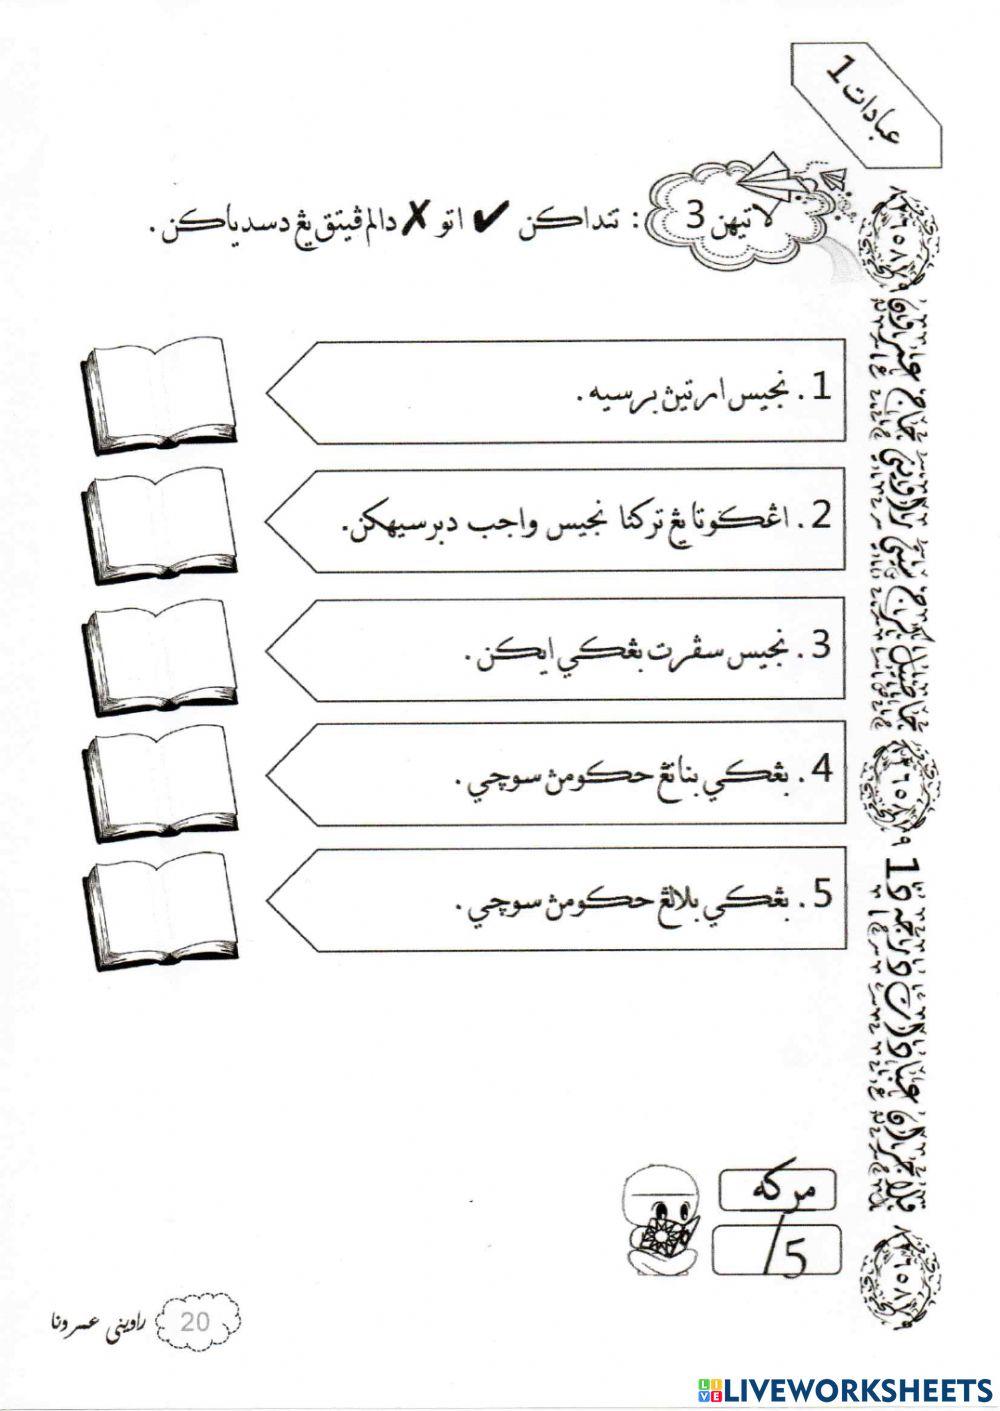 عبادات 1
لاتيهن 3 : تنداكن ✔ اتو ✘ دالم ڤيتق يڠ دسدياكن.
1. نجيس ارتيڽ برسيه.
2. اڠݢوتا يڠ تركنا نجيس واجب دبرسيهكن.
3. نجيس سڤرت بڠكي ايكن.
4. بڠكي بناتڠ حكومڽ سوچي.
5. بڠكي بلالڠ حكومڽ سوچي.
مركه
/5
راويني عمرونا
20
LIVEWORKSHEETS